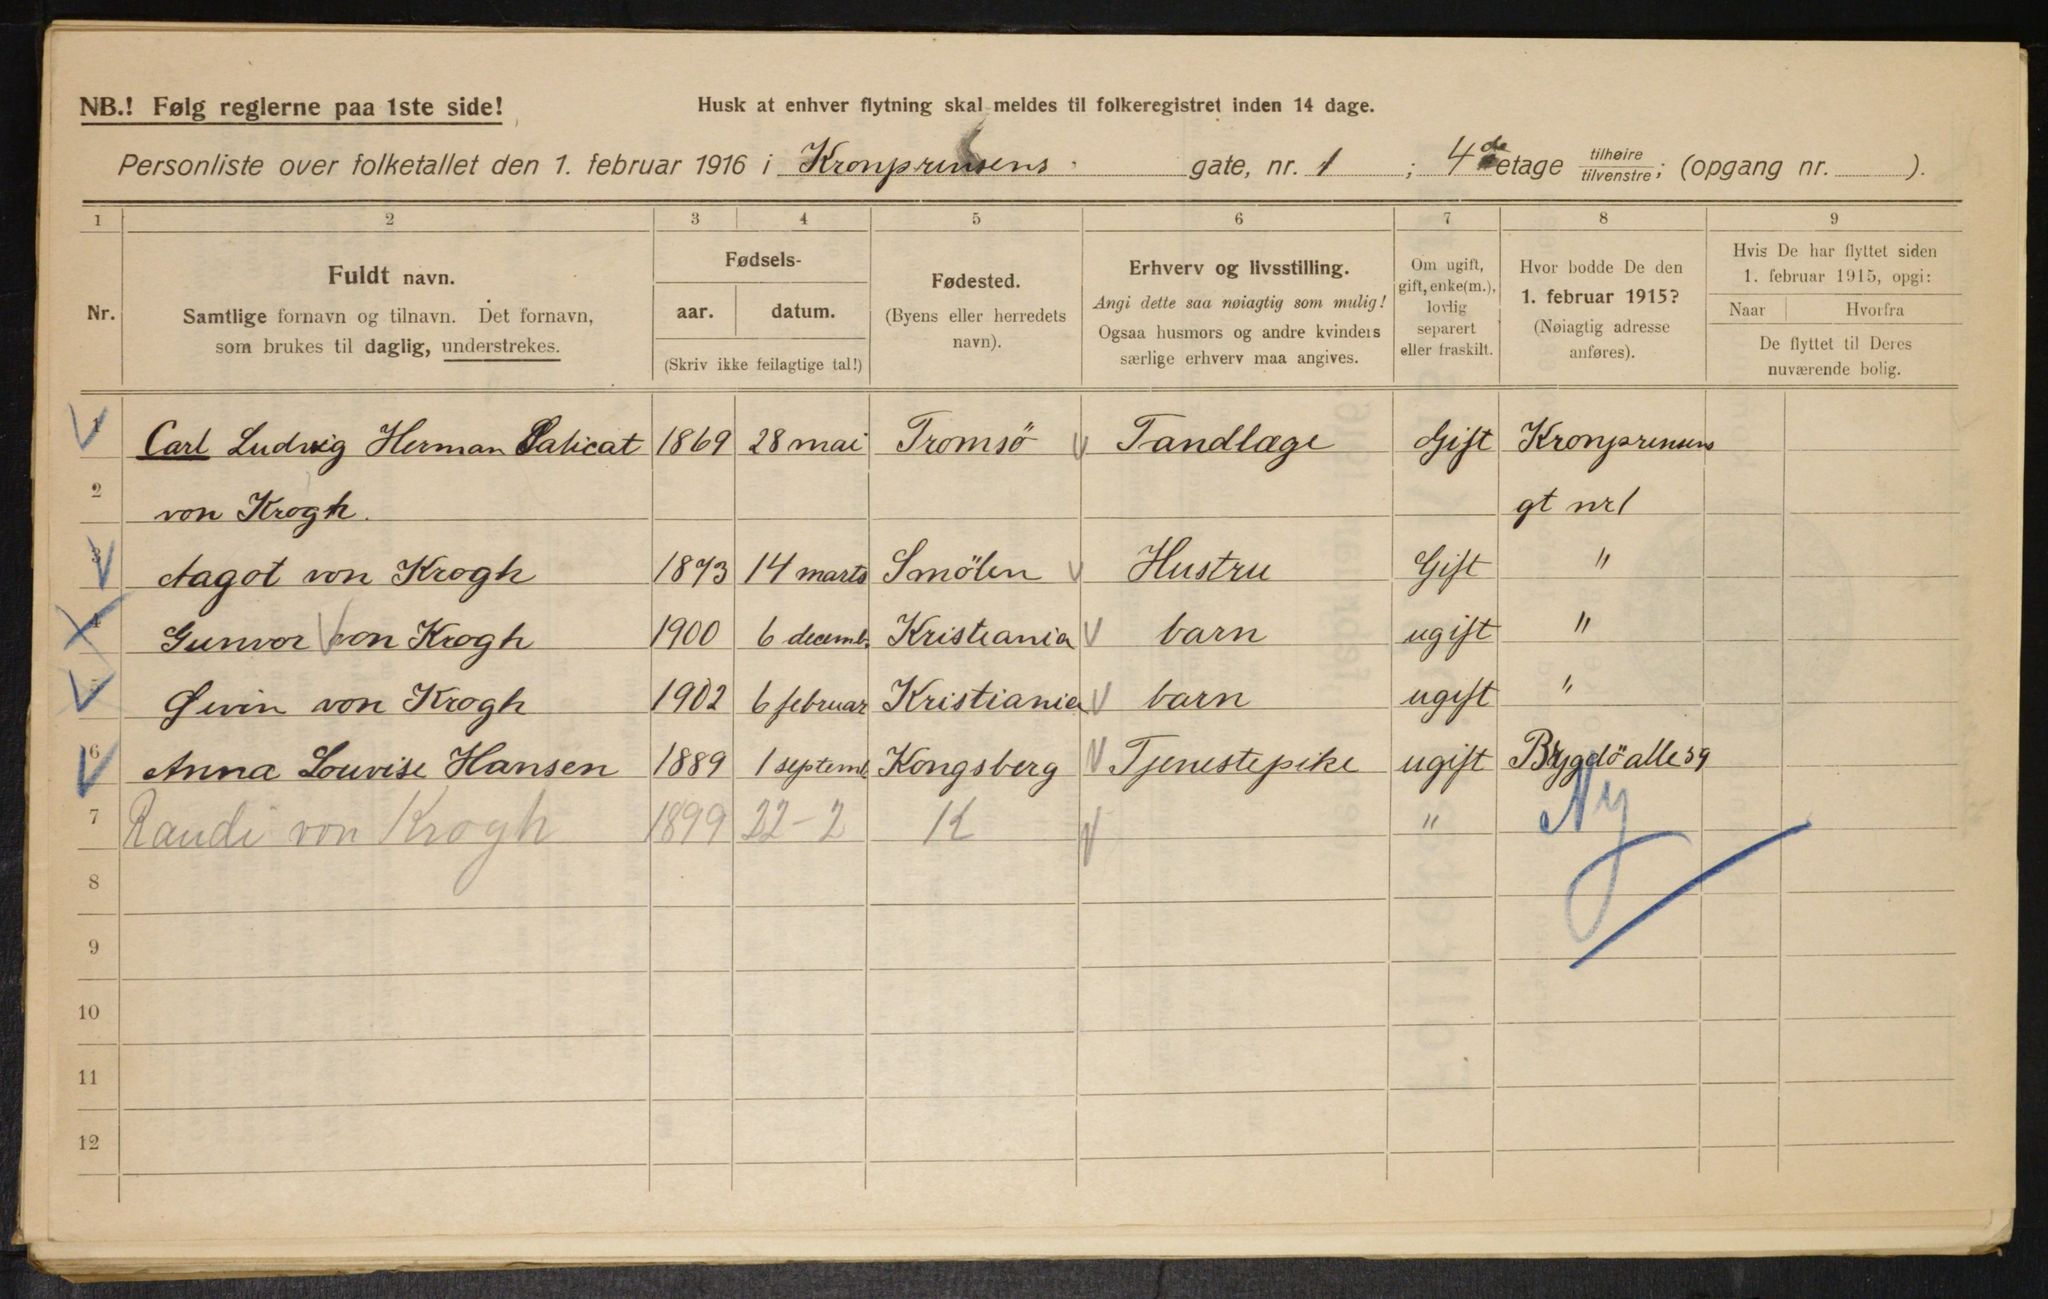 NB.! Følg reglerne paa 1ste side!
Husk at enhver flytning skal meldes til folkeregistret inden 14 dage.
Personliste over folketallet den 1. februar 1916 i Kronprinsens gate, nr. 1 ; 4de etage tilhøire tilvenstre; (opgang nr. ).
1 2 3 4 5 6 7 8 9
Nr.
Fuldt navn.
Samtlige fornavn og tilnavn. Det fornavn,
som brukes til daglig, understrekes.
Fødsels-
aar. datum.
(Skriv ikke feilagtige tal!)
Fødested.
(Byens eller herredets
navn).
Erhverv og livsstilling.
Angi dette saa nøiagtig som mulig!
Ogsaa husmors og andre kvinders
særlige erhverv maa angives.
Om ugift,
gift, enke(m.),
lovlig
separert
eller fraskilt.
Hvor bodde De den
1. februar 1915?
(Nøiagtig adresse
anføres).
Hvis De har flyttet siden
1. februar 1915, opgi:
Naar Hvorfra
De flyttet til Deres
nuværende bolig.
1 Carl Ludvig Herman Salicat 1869 28 mai Tromsö Tandlæge Gift Kronprinsens
2 von Krogh. gt nr 1
3 Aagot von Krogh 1873 14 marts Smölen Hustru Gift "
4 Gunvor von Krogh 1900 6 decemb. Kristiania barn ugift "
5 Øivin von Krogh 1902 6 februar Kristiania barn ugift "
6 Anna Louvise Hansen 1889 1 septemb. Kongsberg Tjenestepike ugift Bygdö alle 39
7 Randi von Krogh 1899 22-2 K " Ny
8
9
10
11
12